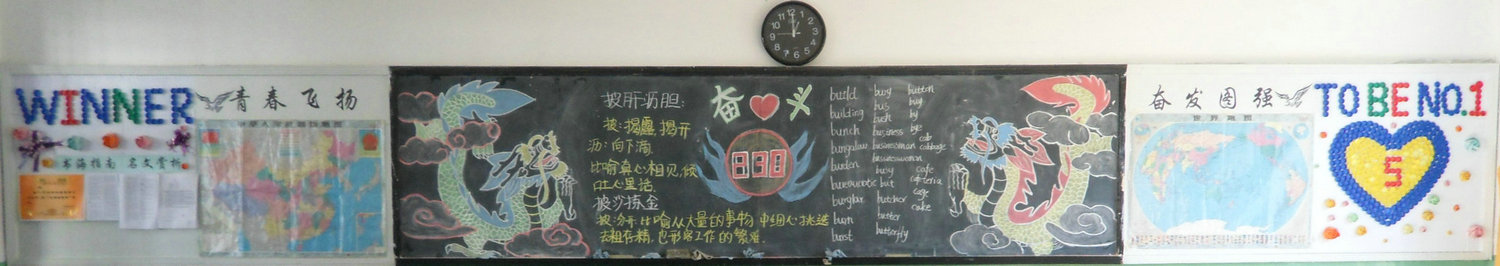 WINNER
青春飞扬
书海指南 名文赏析
12
1
2
3
4
5
6
7
8
9
10
11
披肝沥胆:
披:揭露,揭开
沥:向下滴
比喻真心相见,倾
吐心里话.
披沙拣金
披:分开 比喻从大量的事物中细心挑选
去粗存精.也形容工作的繁难.
奋 义
888
build
building
bunch
bungalow
burden
bureaucratic
burglar
burn
burst
bury
bus
bush
business
businessman
businesswoman
busy
but
butcher
butter
butterfly
button
buy
by
bye
cab
cabbage
cafe
cafeteria
cage
cake
奋发图强
世界地图
TO BE NO.1
5